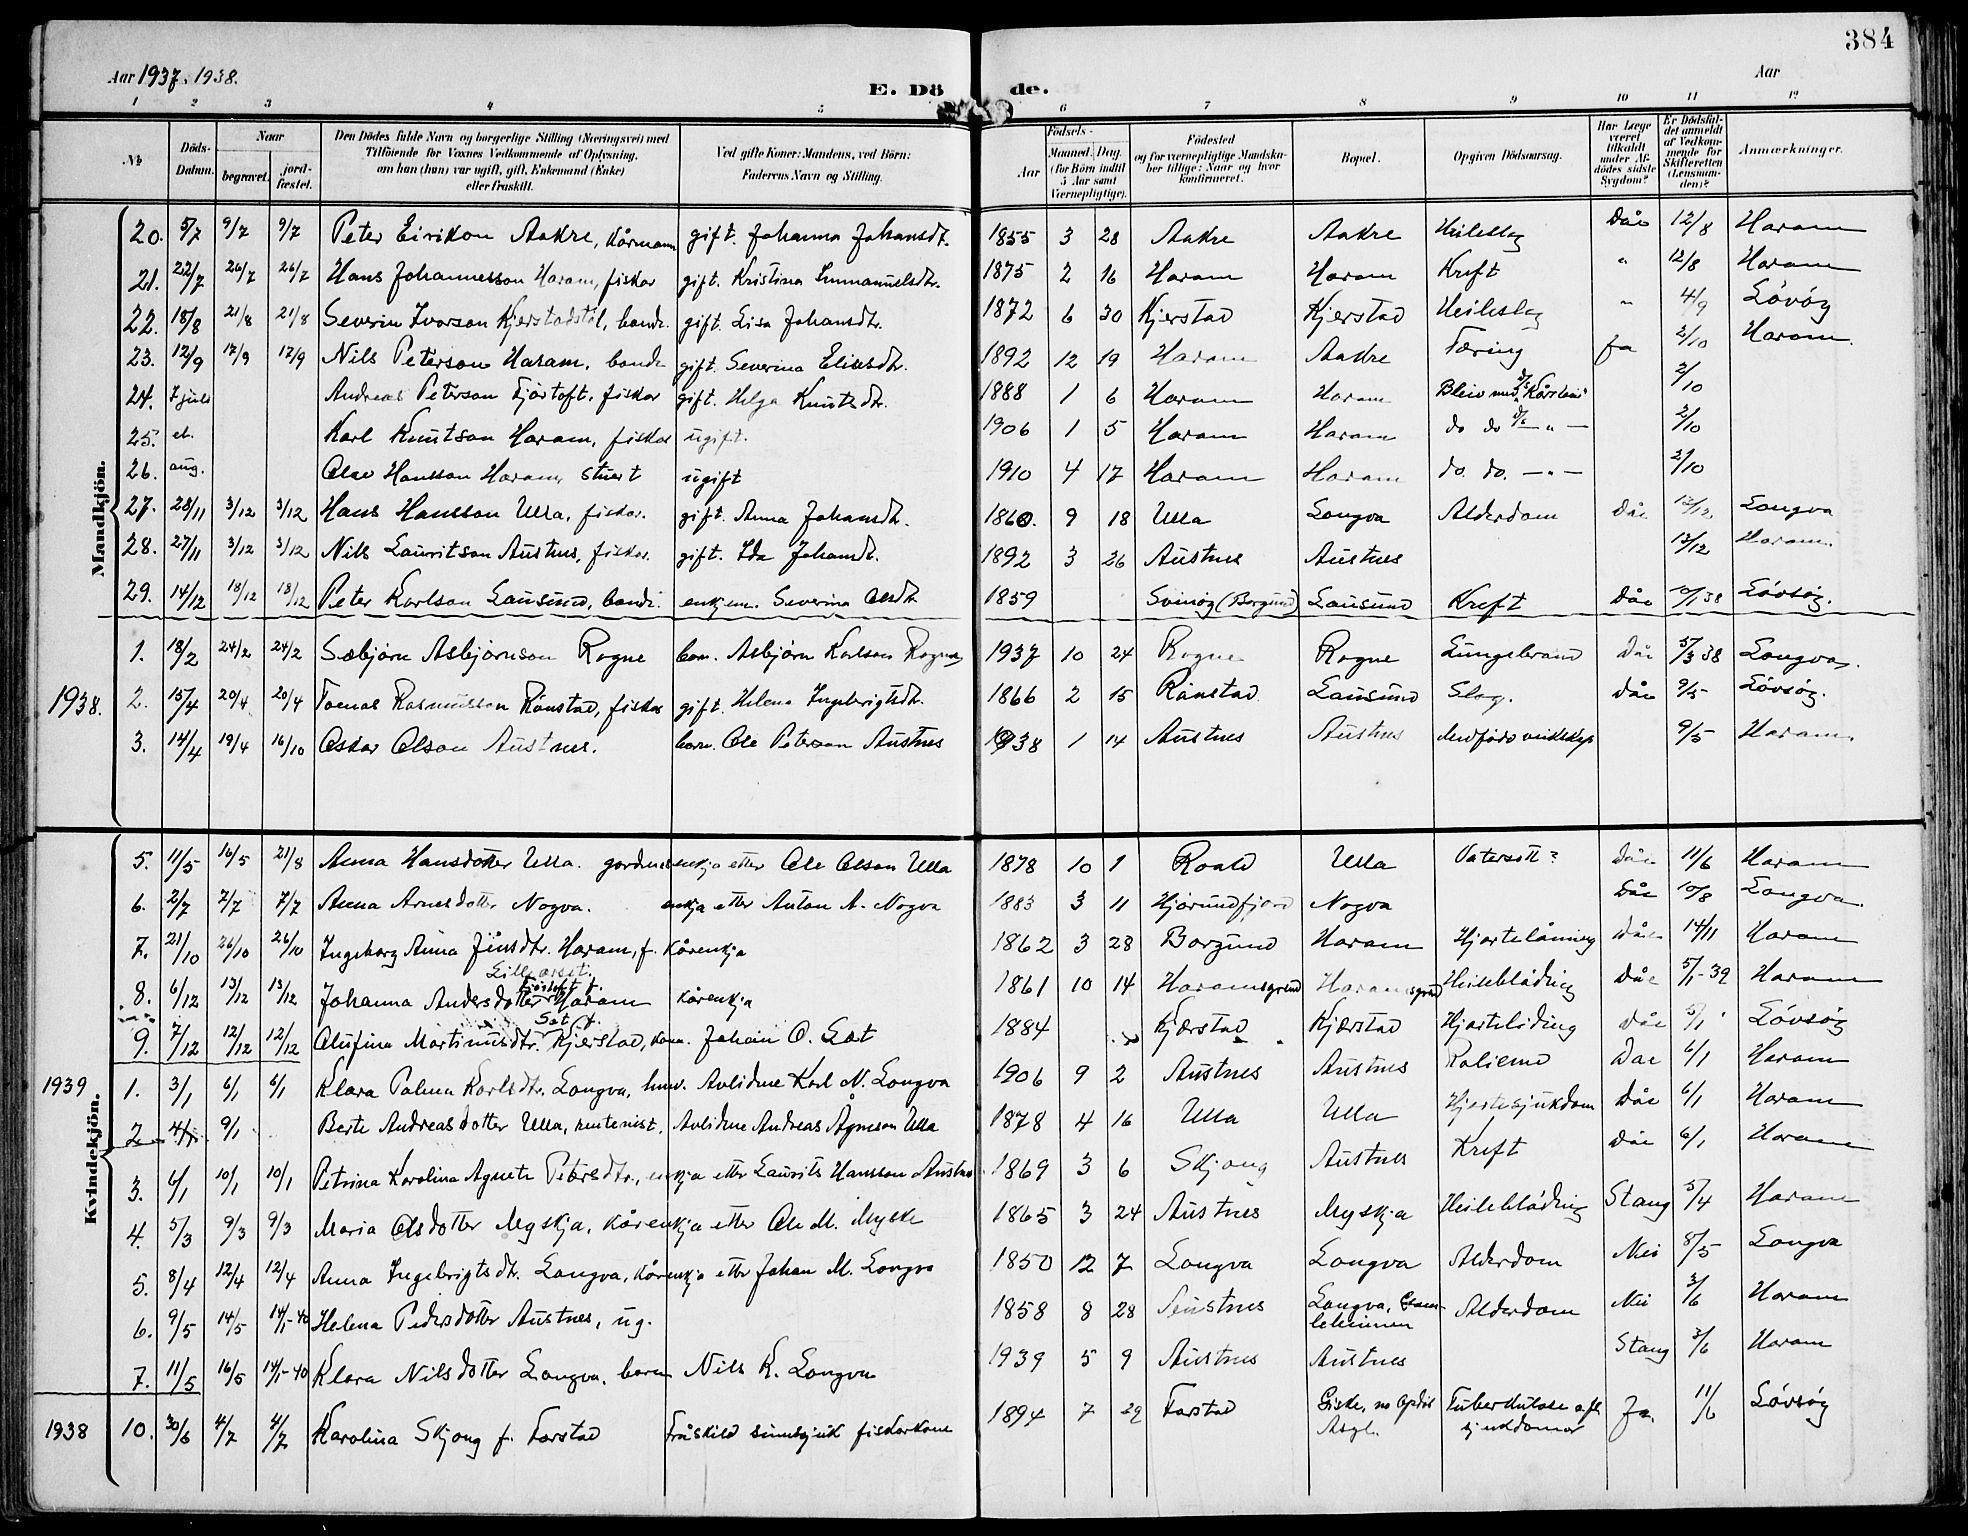 384
Aar 1937. 1938.
E. Dö de.
Aar
1 2 3 4 5 6 7 8 9 10 11 12
№ Döds-Datum. Naar begravet. jordfæstet. Den Dödes fulde Navn og borgerlige Stilling (Næringsvei) med Tilföiende for Voxnes Vedkommende af Oplysning, om han (hun) var ugift, gift, Enkemand (Enke) eller fraskilt. Ved gifte Koner: Mandens, ved Börn: Faderens Navn og Stilling. Födsels- Aar Maaned. Dag. (for Börn indtil 5 Aar samt Værnepligtige). Födested og for værnepligtige Mandskaber tillige: Naar og hvor konfirmeret. Bopæl. Opgiven Dödsaarsag. Har Læge været tilkaldt under Afdödes sidste Sygdom? Er Dödsfaldet anmeldt af Vedkommende for Skifteretten (Lensmanden)? Anmærkninger.
Mandkjön.
20. 5/7 9/7 9/7 Peter Eirikson Aakre, kårmann gift. Johanna Johansdt. 1855 3 28 Aakre Aakre Heileslag Dåe 12/8 Haram
21. 22/7 26/7 26/7 Hans Johannesson Haram, fiskar gift. Kristina Immanuelsdtr. 1875 2 16 Haram Haram Kreft " 12/8 Haram
22. 18/8 21/8 21/8 Severin Ivarson Kjerstadstøl, bonde. gift. Lisa Johansdtr. 1872 6 30 Kjerstad Kjerstad Heileslag " 4/9 Løvsøy
23. 12/9 17/9 17/9 Nils Peterson Haram, bonde gift. Severina Eliasdtr. 1892 12 19 Haram Aakre Tæring Ja 2/10 Haram.
24. 7 juli Andreas Peterson Fjørtoft, fiskar gift. Helga Knutsdtr. 1888 1 6 Haram Haram Bleiv med 2/10
25. el. Karl Knutson Haram, fiskar ugift. 1906 1 5 Haram Haram do do — " — 2/10
26. aug. Olav Hansson Haram, stuert ugift 1910 4 17 Haram Haram do. do. — " — 2/10
27. 28/11 3/12 3/12 Hans Hansson Ulla, fiskar. gift. Anna Johansdtr. 1860. 9 18 Ulla Longva Alderdom Dåe 13/12. Longva
28. 27/11 3/12 3/12 Nils Lauritson Austnes, fiskar. gift. Ida Johansdt. 1892 3 26 Austnes Austnes 13/12 Haram.
29. 14/12 18/12 18/12 Peter Karlson Lausund, bonde. enkjem. Severina Olsdtr 1859 Svinøy (Borgund) Lausund Kreft Dåe 10/1 38 Løvsøy.
1938.
1. 18/2 24/2 24/2 Sæbjørn Asbjørnson Rogne barn. Asbjørn Karlson Rogne 1937 10 24 Rogne Rogne Lungebrand Dåe 5/3 38 Longva.
2. 15/4 20/4 20/4 Tomas Rasmusson Rønstad, fiskar gift. Helena Ingebrigtsdtr. 1866 2 15 Rønstad Lausund Slag. Dåe 9/5 Løvsøy.
3. 14/4 19/4 16/10 Oskar Olson Austnes. barn. Ole Peterson Austnes 1938 1 14 Austnes Austnes Medfødd veikskap 9/5 Haram.
Kvindekjön.
5. 11/5 16/5 21/8 Anna Hansdotter Ulla. gardmannsenkja etter Ole Olson Ulla 1878 10 1 Roald Ulla Vatersott? Dåe 11/6 Haram
6. 2/7 7/7 7/7 Anna Arnesdotter Nogva. enkja etter Anton A. Nogva 1883 3 11 Hjørundfjord Nogva Dåe 10/8 Longva.
7. 21/10 26/10 26/10 Ingeborg Anna Jónsdtr. Haram, f. Kårenkja 1862 3 28 Borgund Haram Hjartelåming Dåe 14/11 Haram
8. 6/12 13/12 13/12 Johanna Andersdotter Haram kårenkja 1861 10 14 Haramsgrend Haramsgrend Heilebløding Dåe 5/1-39 Haram
9. 7/12 12/12 12/12 Olufina Martinusdtr. Kjerstad, kona. Johan O. Sæt 1884 Kjærstad Kjærstad Hjartelåding Dåe 5/1 Løvsøy
1939
1. 3/1 6/1 6/1 Klara Palma Karlsdtr. Longva, husv. Avlidne Karl N. Longva 1906 9 2 Austnes Austnes Dåe 6/1 Haram
2. 4/1 9/1 Berte Andreasdotter Ulla, rentenist. Avlidne Andreas Ågneson Ulla 1878 4 16 Ulla Ulla Hjartesjukdom Dåe 6/1 Haram
3. 4/1 10/1 10/1 Petrina Karolina Agnete Petersdtr., enkja etter Laurits Hansson Austnes 1869 3 6 Skjong Austnes Kreft Dåe 6/1 Haram
4. 5/3 9/3 9/3 Maria Olsdotter Myskja, kårenkja etter Ole M. Myskja 1865 3 24 Austnes Myskja Heilebløding Stang 5/4 Haram
5. 8/4 12/4 12/4 Anna Ingebrigtsdtr. Longva, kårenkja etter Johan M. Longva 1850 12 7 Longva Longva Alderdom Nei 8/5 Longva
6. 9/5 14/5 14/1-40 Helena Pedersdotter Austnes, ug. 1858 8 28 Austnes Longva, Gamleheimen Alderdom Nei 3/6 Haram
7. 11/5 16/5 14/1-40 Klara Nilsdotter Longva, barn Nils K. Longva 1939 5 9 Austnes Austnes Stang 3/6 Haram
1938
10. 30/6 4/7 4/7 Karolina Skjong f. Farstad Fråskild sinnssjuk fiskarkone 1894 7 29 Farstad Giske, no Opdøl Asyl. Tuberkulose o.fl. sjukdomar Ja. 11/6 Løvsøy